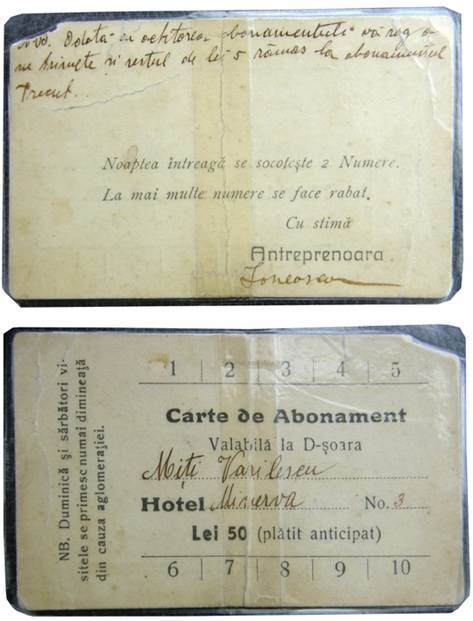 Odată cu achitarea abonamentului vă rog a
ne trimete și restul de lei 5 rămas la abonamentul
trecut.
Noaptea întreagă se socotește 2 Numere.
La mai multe numere se face rabat.
Cu stimă
Antreprenoara
Ionescu
1 2 3 4 5
Carte de Abonament
Valabilă la D-șoara
Miți Vasilescu
Hotel Minerva No. 3
Lei 50 (plătit anticipat)
6 7 8 9 10
NB. Duminică și sărbători vi-
sitele se primesc numai dimineață
din cauza aglomerației.